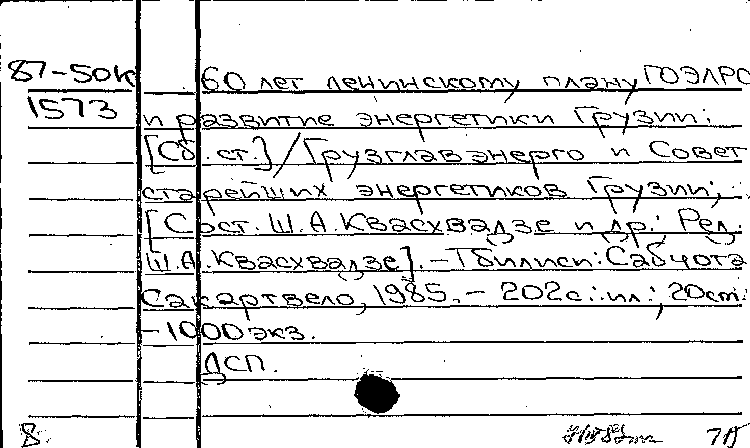 87-50к 60 лет ленинскому плану ГОЭЛРО
1573 и развитие энергетики Грузии:
[Сб. ст.]/Грузглавэнерго и Совет
старейших энергетиков Грузии;
[Сост. Ш.А.Квасхвадзе и др.; Ред.
Ш.А.Квасхвадзе]. - Тбилиси: Сабчота
Сакартвело, 1985. - 202с.: ил.; 20см.
-1000 экз.
ДСП.
8.